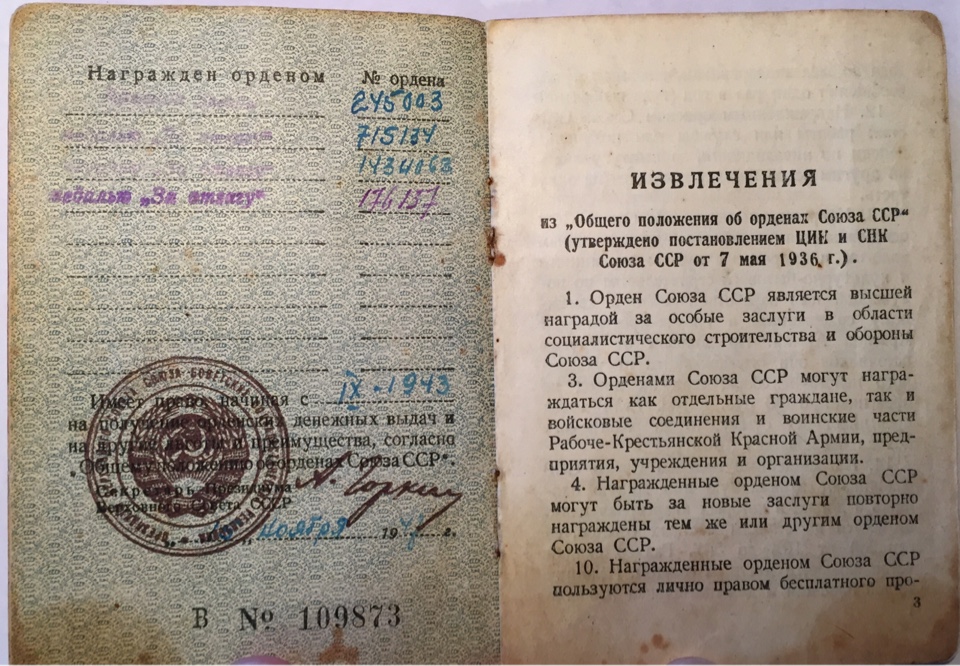 Награжден орденом № ордена
245003
715134
медалью „За отвагу“ 176157
Имеет право, начиная с IX - 1943
на получение орденских денежных выдач и
на другие льготы и преимущества, согласно
„Общему положению об орденах Союза ССР“.
Секретарь Президиума
Верховного Совета СССР
А. Горкин
ноября 194 г.
В № 109873
ИЗВЛЕЧЕНИЯ
из „Общего положения об орденах Союза ССР“
(утверждено постановлением ЦИК и СНК
Союза ССР от 7 мая 1936 г.).
1. Орден Союза ССР является высшей
наградой за особые заслуги в области
социалистического строительства и обороны
Союза ССР.
3. Орденами Союза ССР могут награ-
ждаться как отдельные граждане, так и
войсковые соединения и воинские части
Рабоче-Крестьянской Красной Армии, пред-
приятия, учреждения и организации.
4. Награжденные орденом Союза ССР
могут быть за новые заслуги повторно
награждены тем же или другим орденом
Союза ССР.
10. Награжденные орденом Союза ССР
пользуются лично правом бесплатного про-
3